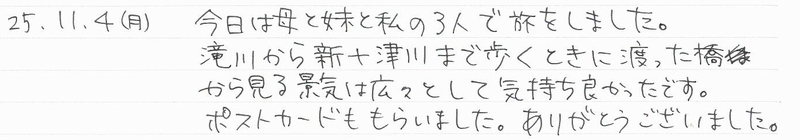 25.11.4(月) 今日は母と妹と私の3人で旅をしました。
滝川から新十津川まで歩くときに渡った橋
から見る景気は広々として気持ち良かったです。
ポストカードももらいました。ありがとうございました。